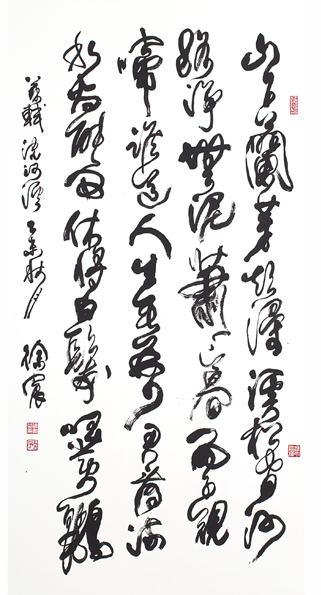 山下蘭芽短浸溪松間沙
路淨無泥蕭々暮雨子規
啼誰道人生無再少門前流
水尚能西休將白髮唱黃鷄
蘇軾浣溪沙 乙未秋月 徐